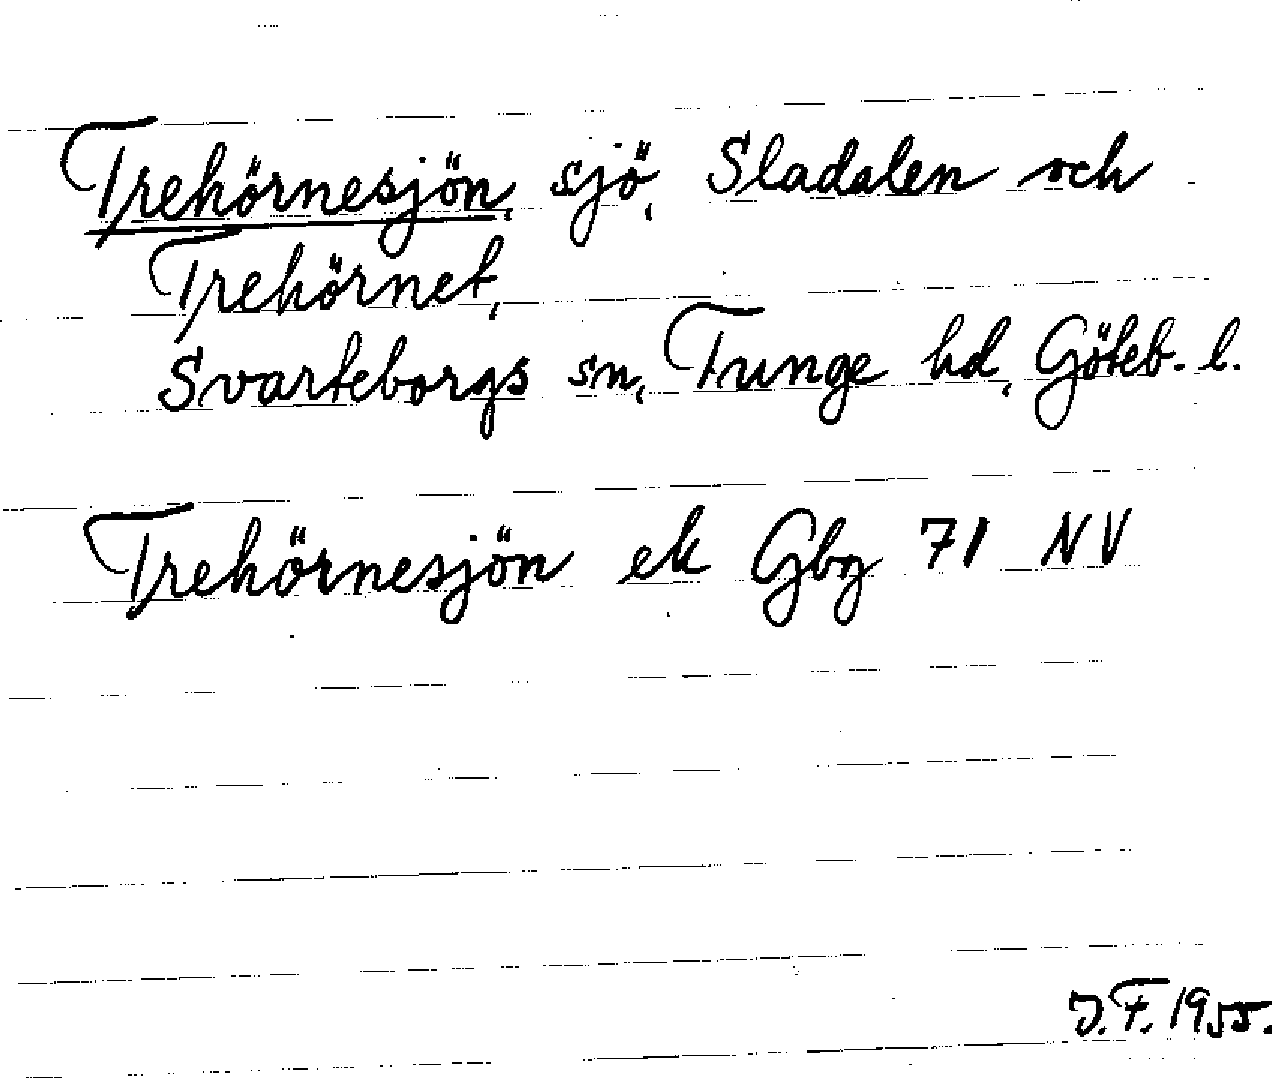 Trehörnesjön, sjö, Sladalen och
Trehörnet,
Svarteborgs sn, Tunge hd, Göteb. l.
Trehörnesjön ek Gbg 71 NV
J.F. 1955.